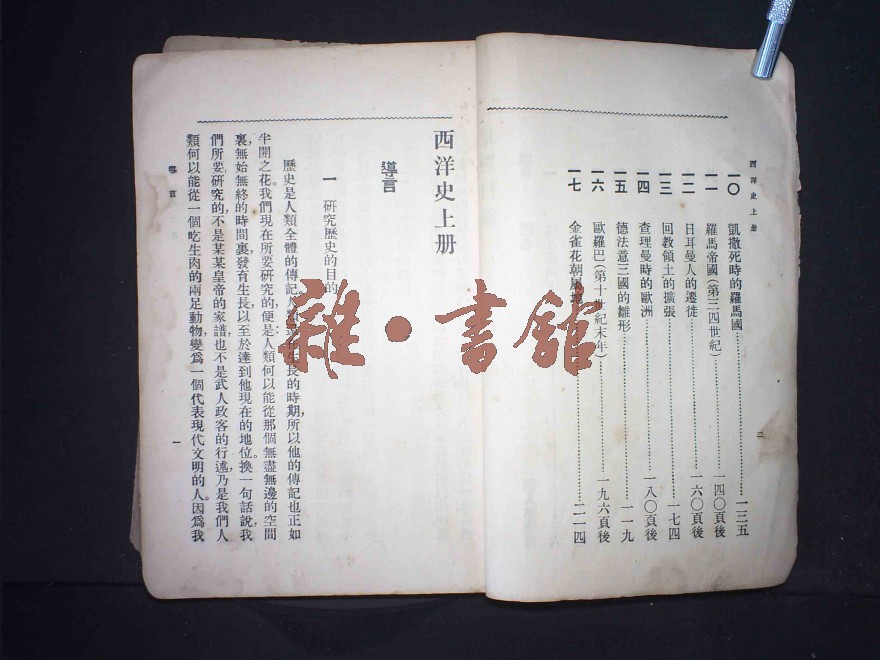 西洋史上册
二
一〇 凱撒死時的羅馬國 一三五
一一 羅馬帝國(第三四世紀) 一四〇頁後
一二 日耳曼人的遷徙 一六〇頁後
一三 回教領土的擴張 一七四
一四 查理曼時的歐洲 一八〇頁後
一五 德法意三國的雛形 一一九
一六 歐羅巴(第十世紀末年) 一九六頁後
一七 金雀花朝屬 二一四
西洋史上册
導言
一 研究歷史的目的
歷史是人類全體的傳記,人類 生長的時期,所以他的傳記也正如
半開之花。我們現在所要研究的,便是人類何以能從那個無盡無邊的空間
裏,無始無終的時間裏發育生長,以至於達到他現在的地位。換一句話說,我
們所要研究的,不是某某皇帝的家譜,也不是武人政客的行述,乃是我們人
類何以能從一個吃生肉的兩足動物,變爲一個代表現代文明的人。因爲我
導言
一
雜·書館